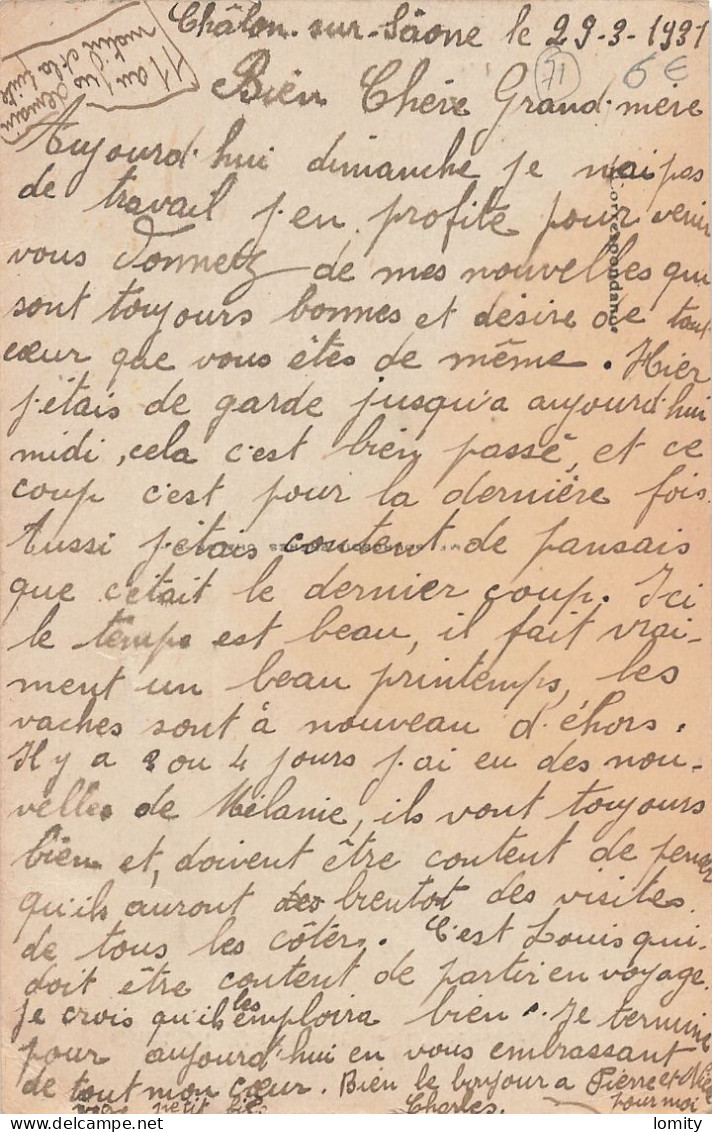 Châlon-sur-Sâone le 29-3-1931
71
6€
11 au jus
demain
matin et la fuite
Bien Chère Grand-mère
Aujourd'hui dimanche je n'ai pas
de travail j'en profite pour venir
vous donnez de mes nouvelles qui
sont toujours bonnes et désire de tout
cœur que vous êtes de même. Hier
j'étais de garde jusqu'a aujourd'hui
midi, cela c'est bien passé, et ce
coup c'est pour la dernière fois.
Aussi j'étais content de pansais
que c'était le dernier coup. Ici
le temps est beau, il fait vrai-
ment un beau printemps, les
vaches sont à nouveau d'éhors.
Il y a 3 ou 4 jours j'ai eu des nou-
velles de Mélanie, ils vont toujours
bien et, doivent être content de penser
qu'ils auront des bientot des visites
de tous les côtés. C'est Louis qui-
doit être content de partir en voyage.
Je crois qu'il les emploira bien. Je termine
pour aujourd'hui en vous embrassant
de tout mon cœur. Bien le bonjour a Pierre et
votre petit fils Charles. pour moi
Correspondance